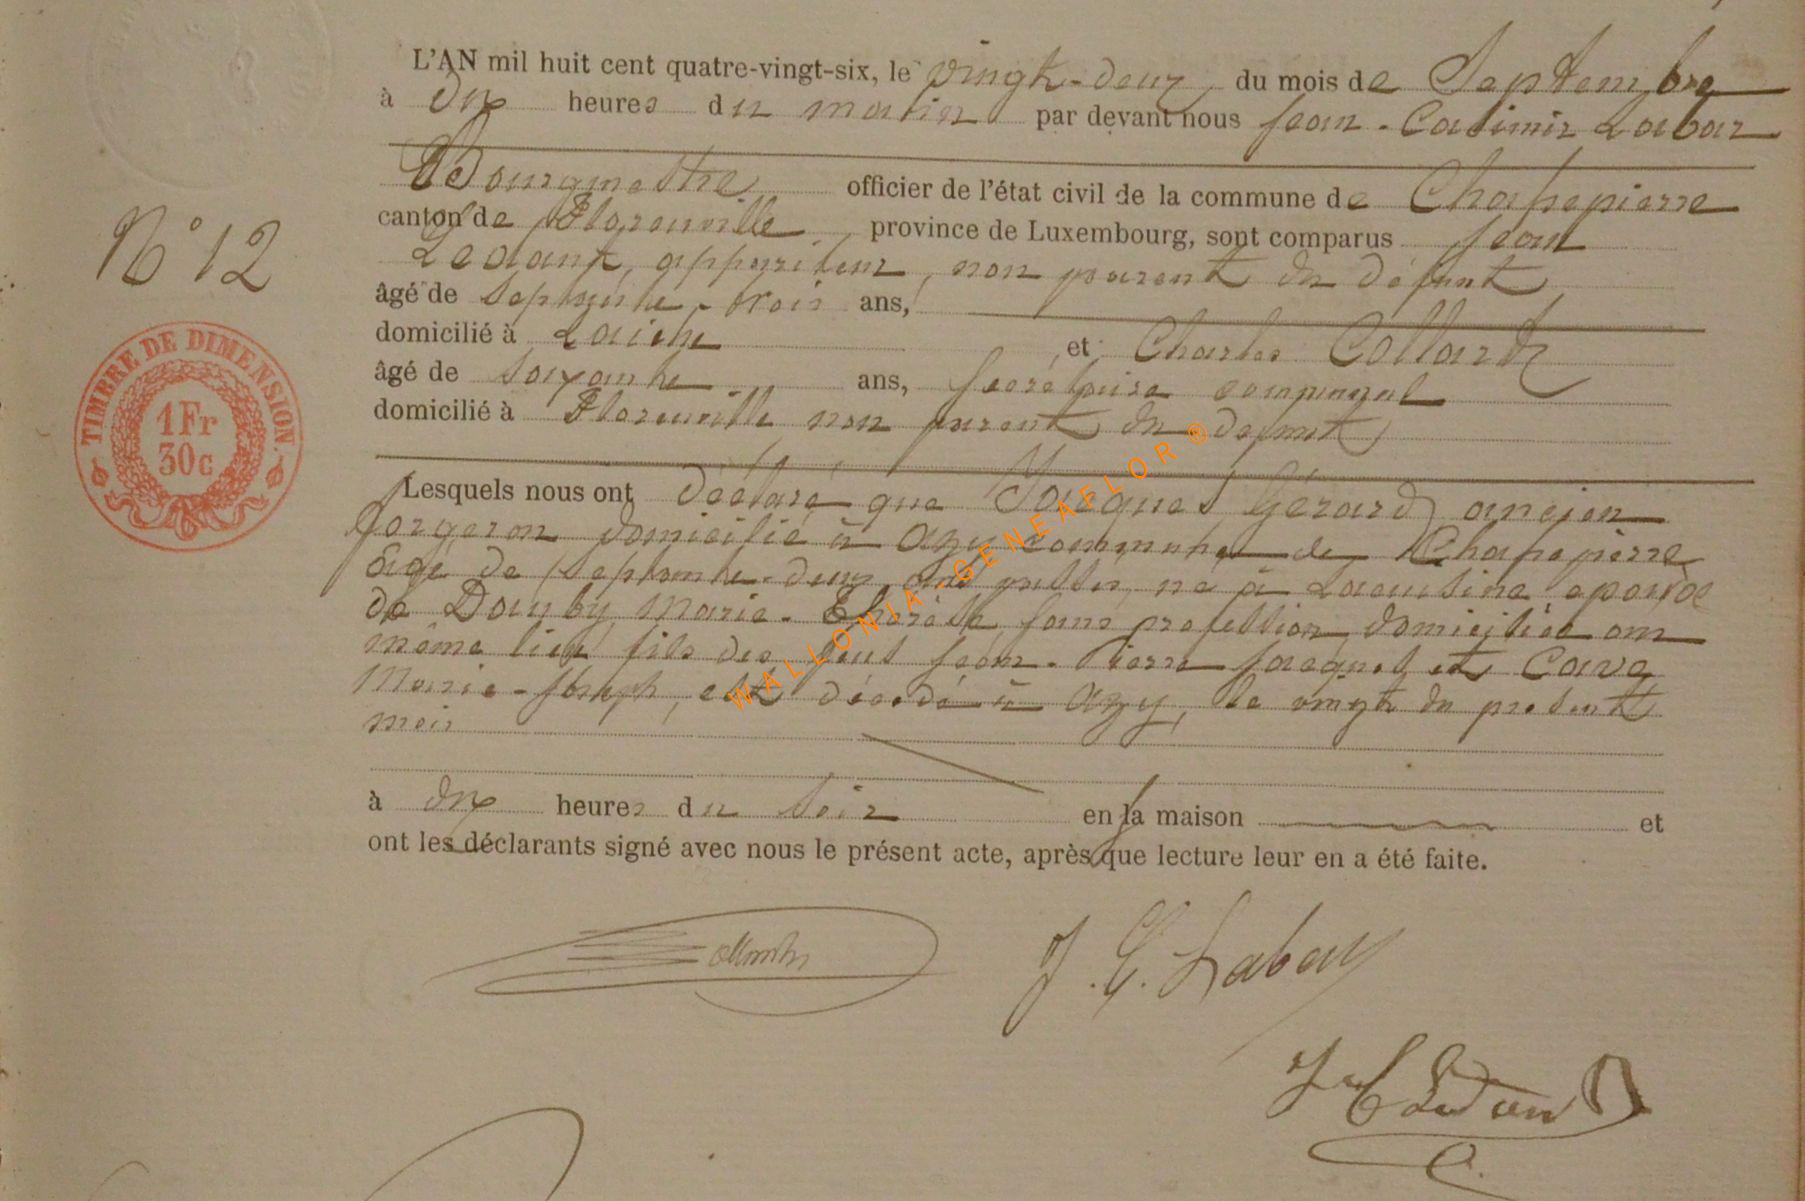 L'AN mil huit cent quatre-vingt-six, le vingt-deux du mois de Septembre
à dix heures du matin par devant nous Jean-Casimir Labar
Bourgmestre officier de l'état civil de la commune de Chassepierre
canton de Florenville province de Luxembourg, sont comparus Jean
Ledant, appariteur, non parent du défunt
âgé de septante-trois ans,
domicilié à Laiche et Charles Collard
âgé de soixante ans, secrétaire communal
domicilié à Florenville non parent du défunt
Lesquels nous ont déclaré que Jacques Gérard ancien
forgeron domicilié à Azy commune de Chassepierre
âgé de septante-deux ans né à Lacuisine époux
de Marie-Thérèse, sans profession domiciliée au
même lieu fils des feus Jean-Pierre Jacques et
Marie-Joseph, est décédé à Azy, le vingt du présent
mois
à dix heures du soir en la maison et
ont les déclarants signé avec nous le présent acte, après que lecture leur en a été faite.
N° 12
TIMBRE DE DIMENSION.
1 Fr
30c
WALLONIA-GENEAFLOR®